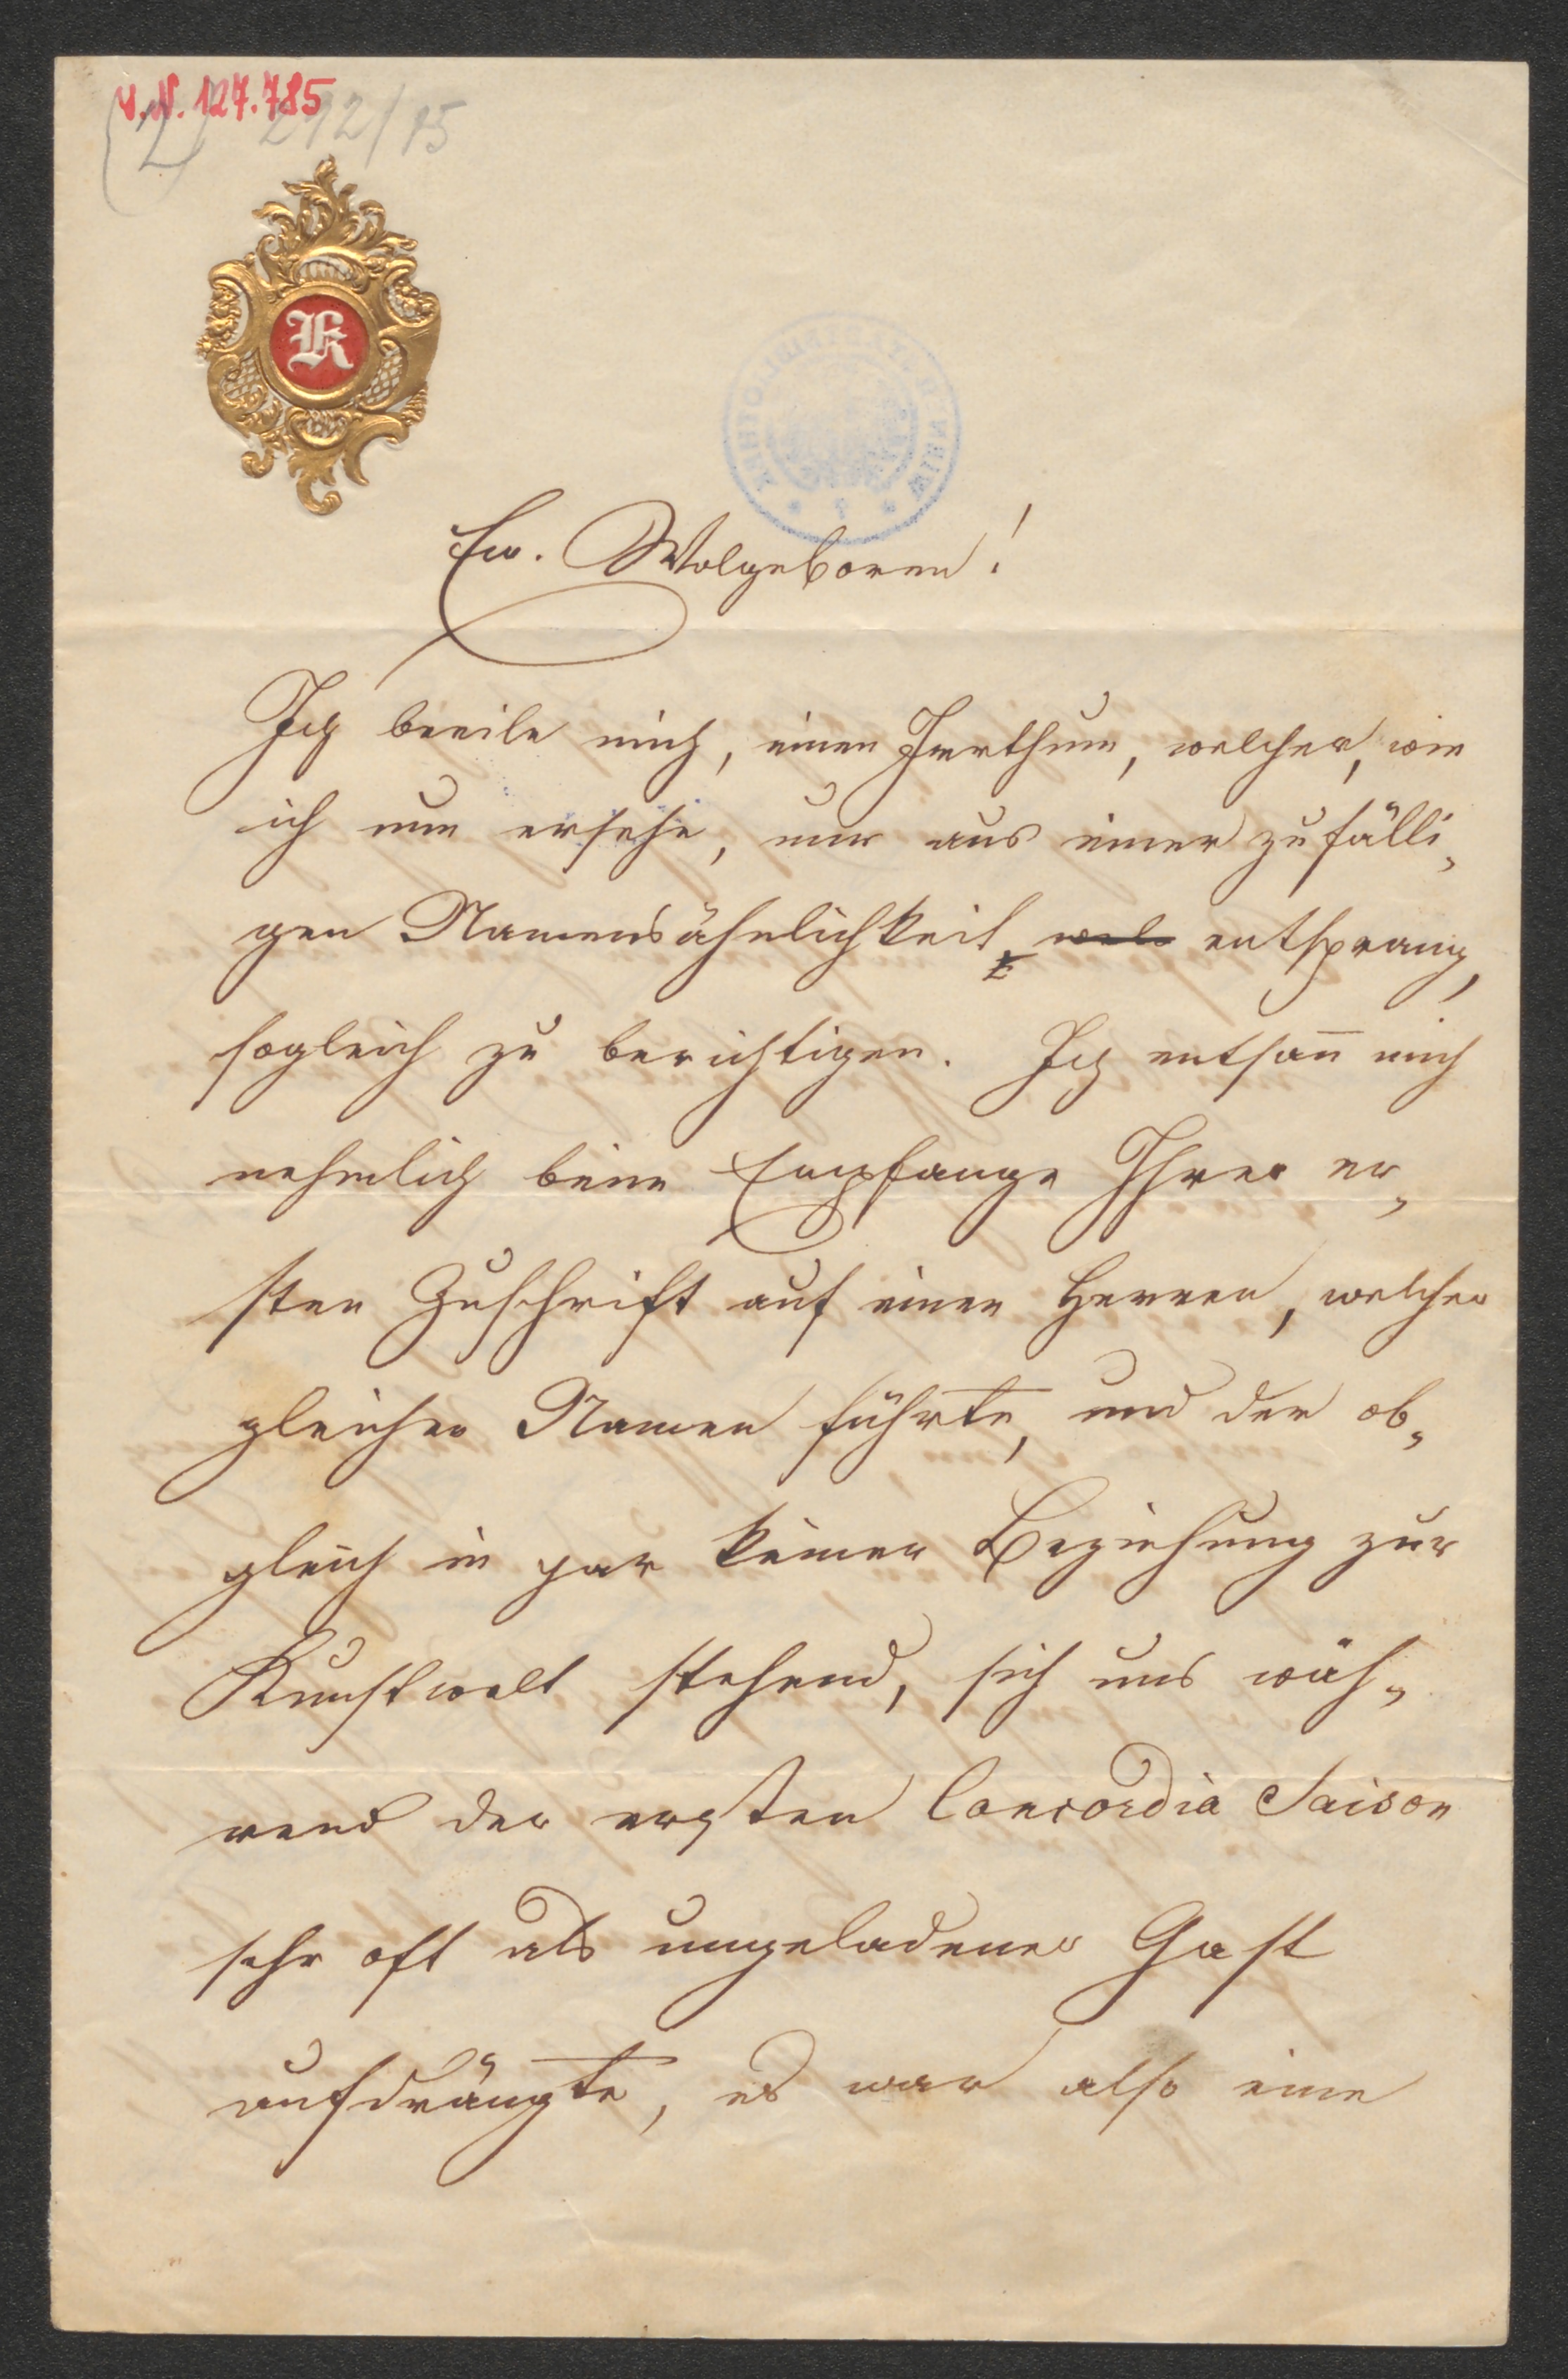 I.N. 127.785
(2) 212/15
K
Ew. Wolgeboren!
Ich beeile mich, einen Irrthum, welcher, wie
ich nun ersehe, nur aus einer zufälli„
gen Namensähnlichkeit wel entsprang,
sogleich zu berichtigen. Ich entsan̄ mich
nehmlich beim Empfange Ihrer er„
sten Zuschrift auf einen Herren, welcher
gleichen Namen führte, und der ob„
gleich in gar keiner Beziehung zur
Kunstwelt stehend, sich uns wäh„
rend der ersten Concordia Saison
sehr oft als ungeladener Gast
aufdrängte, es war also eine